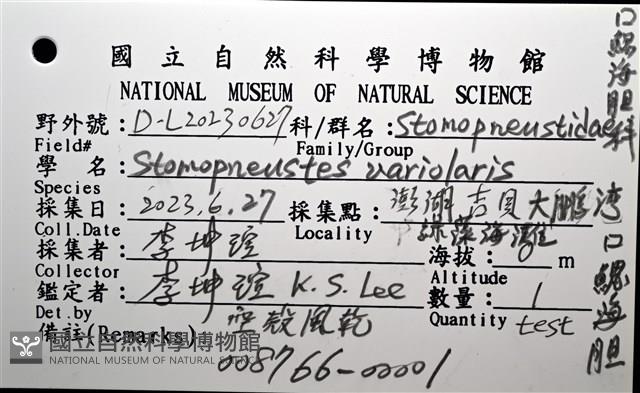 國立自然科學博物館
NATIONAL MUSEUM OF NATURAL SCIENCE
野外號：D-L20230627 科/群名：Stomopneustidae
Field# Family/Group
學 名：Stomopneustes variolaris
Species
採集日：2023.6.27 採集點：澎湖吉貝大鵬湾
Coll.Date Locality
球藻海灘
採集者：李坤瑄 海拔：0 m
Collector Altitude
鑑定者：李坤瑄 K.S.Lee 數量：1
Det.by Quantity test
備註(Remarks) 空殼風乾
008766-00001
口鰓海胆科
口鰓海胆
國立自然科學博物館
NATIONAL MUSEUM OF NATURAL SCIENCE